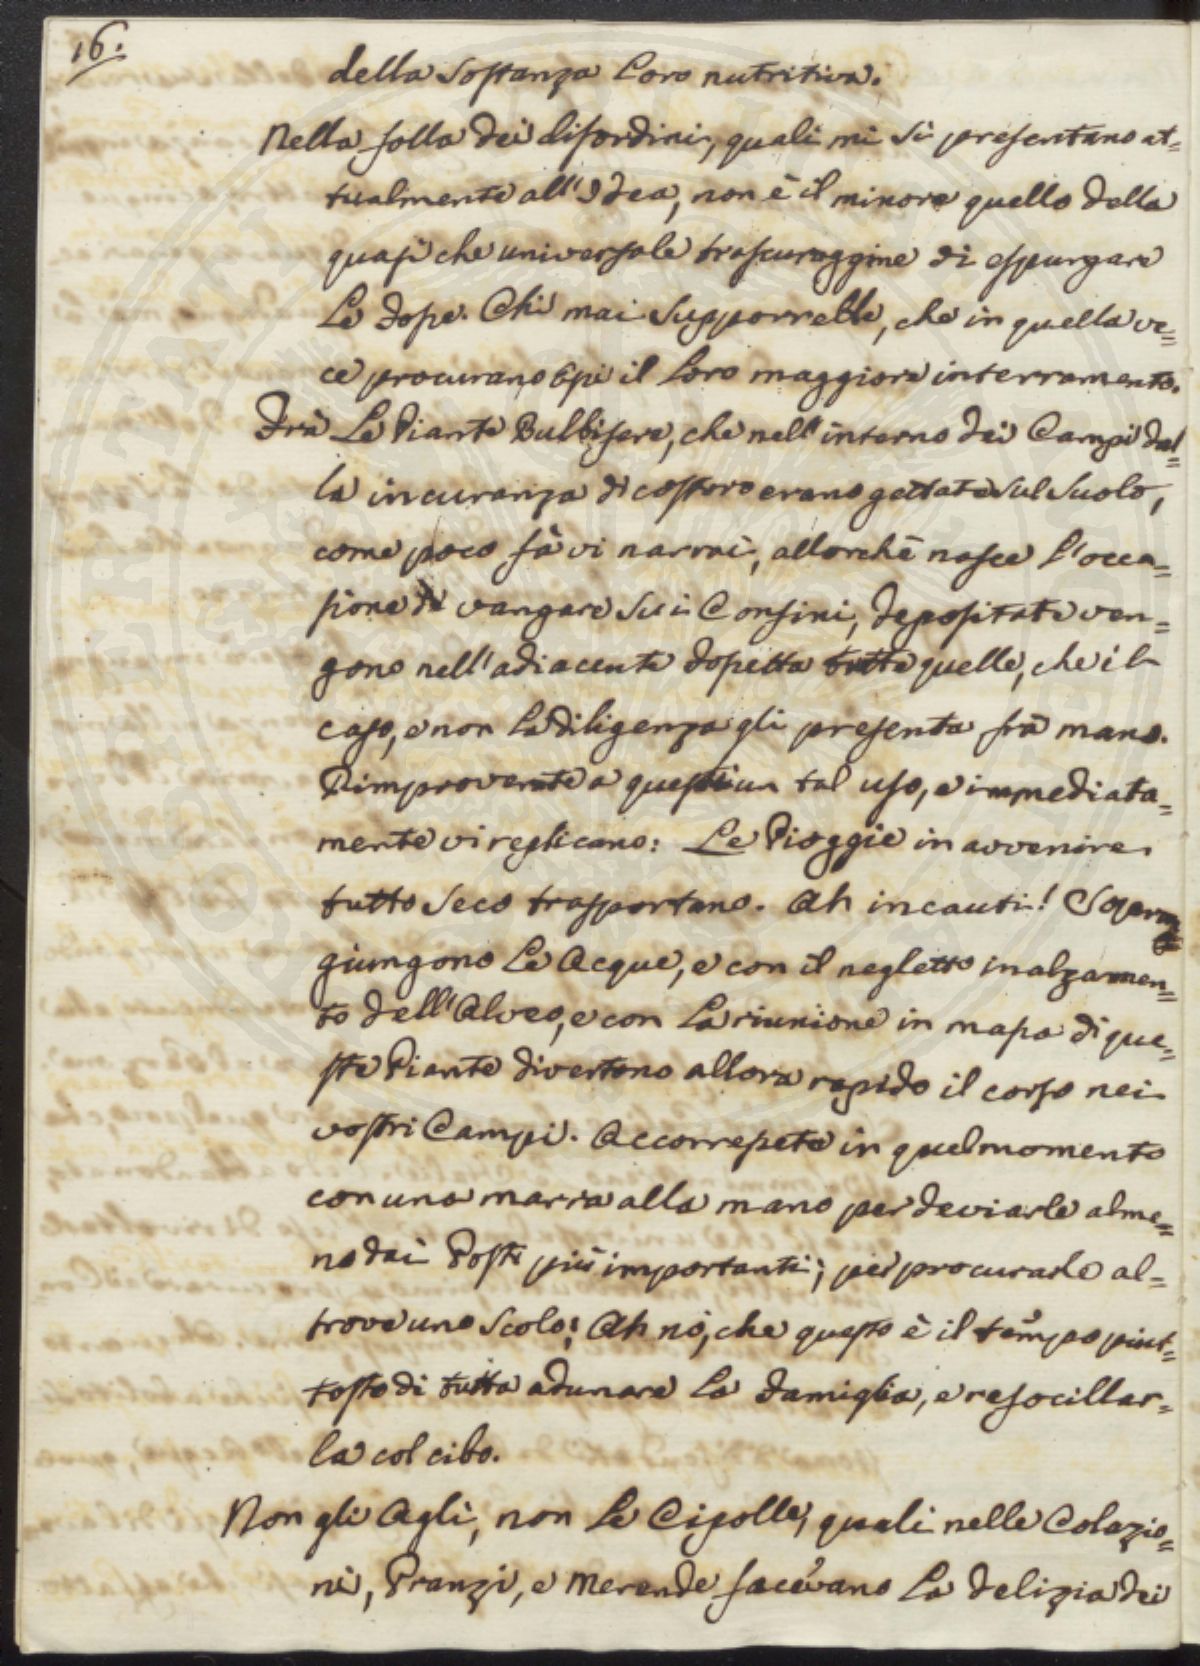 16.
della Sostanza Loro nutritiva.
Nella folla dei disordini, quali mi si presentano at=
tualmente all'Idea, non è il minore quello della
quasi che universale trascuraggine di espurgare
Le Fosse. Chi mai Supporrebbe, che in quella ve=
ce procurano Essi il Loro maggiore interramento.
Frà Le Piante Bulbifere, che nell'interno dei Campi dal=
la incuranza di costoro erano gettate sul Suolo,
come poco fà vi narrai, allorchè nasce l'occa=
sione di vangare Su i Confini, depositate ven=
gono nell'adiacente Fossetta tutte quelle, che il
caso, e non La diligenza gli presenta frà mano.
Rimproverate a questi un tal uso, e immediata=
mente vi replicano: Le Pioggie in avvenire
tutto Seco trasportano. Ah incauti!
giungono Le Acque, e con il negletto inalzamen=
to dell'Alveo, e con La riunione in massa di que=
ste Piante divertono allora rapido il corso nei
vostri Campi. Accorressete in quel momento
con una marra alla mano per deviarle alme=
no dai Posti più importanti; per procurarle al=
trove uno Scolo; Ah nò, che questo è il tempo piut=
tosto di tutta adunare La Famiglia, e refocillar=
la col cibo.
Non gli Agli, non Le Cipolle, quali nelle Colazio=
ni, Pranzi, e Merende facevano La delizia dei